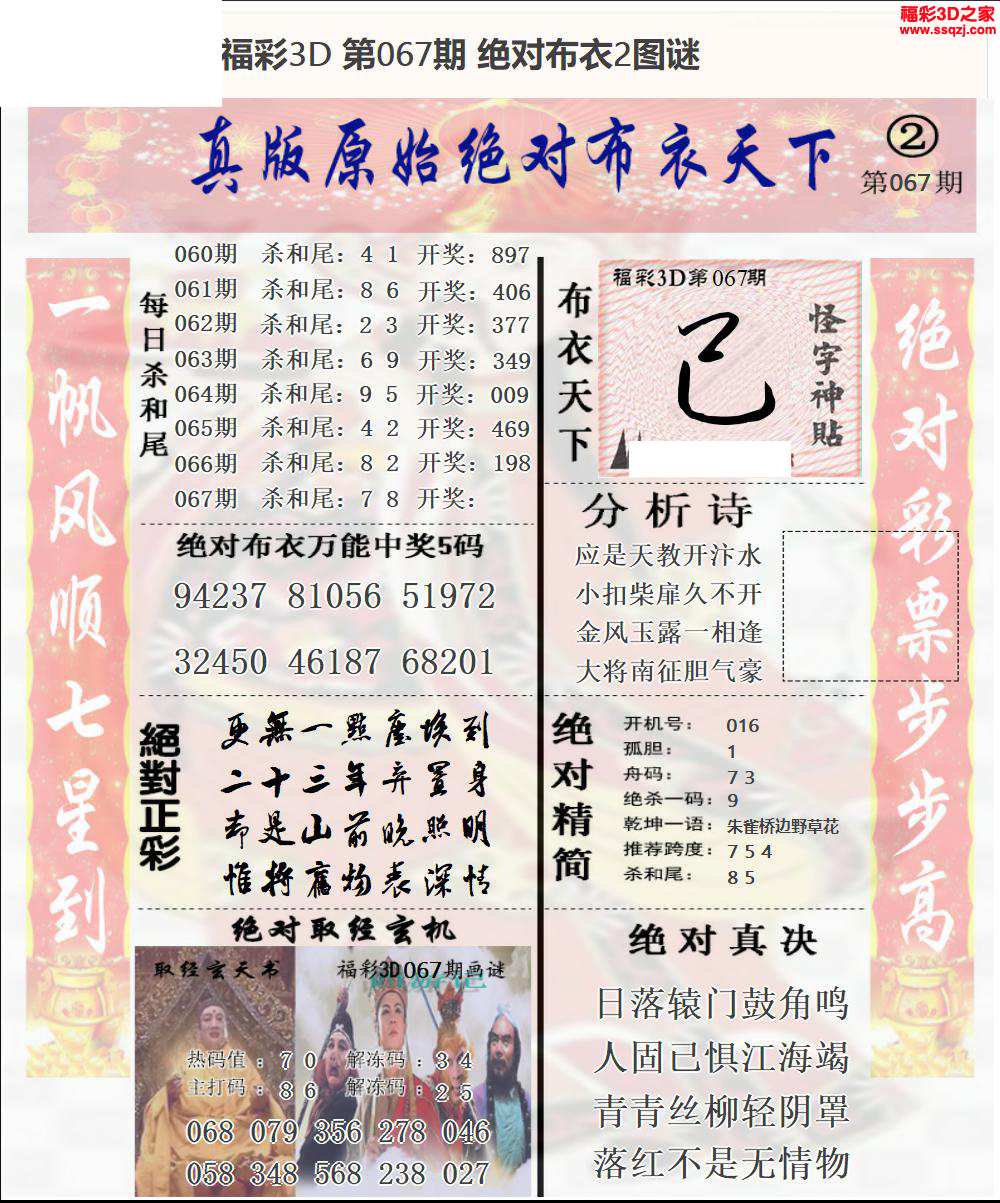 福彩3D之家
www.ssqzj.com
福彩3D 第067期 绝对布衣2图谜
真版原始绝对布衣天下
②
第067期
一帆风顺七星到
每日杀和尾
060期 杀和尾：4 1 开奖：897
061期 杀和尾：8 6 开奖：406
062期 杀和尾：2 3 开奖：377
063期 杀和尾：6 9 开奖：349
064期 杀和尾：9 5 开奖：009
065期 杀和尾：4 2 开奖：469
066期 杀和尾：8 2 开奖：198
067期 杀和尾：7 8 开奖：
绝对布衣万能中奖5码
94237 81056 51972
32450 46187 68201
絕對正彩
更無一點塵埃到
二十三年弃置身
却是山前晚照明
惟将舊物表深情
绝对取经玄机
取经玄天书
福彩3D067期画谜
热码值：7 0 解冻码：3 4
主打码：8 6 解冻码：2 5
068 079 356 278 046
058 348 568 238 027
布衣天下
福彩3D第067期
己
怪字神贴
分析诗
应是天教开汴水
小扣柴扉久不开
金风玉露一相逢
大将南征胆气豪
绝对精简
开机号： 016
孤胆： 1
舟码： 7 3
绝杀一码：9
乾坤一语：朱雀桥边野草花
推荐跨度：7 5 4
杀和尾： 8 5
绝对真决
日落辕门鼓角鸣
人固已惧江海竭
青青丝柳轻阴罩
落红不是无情物
绝对彩票步步高